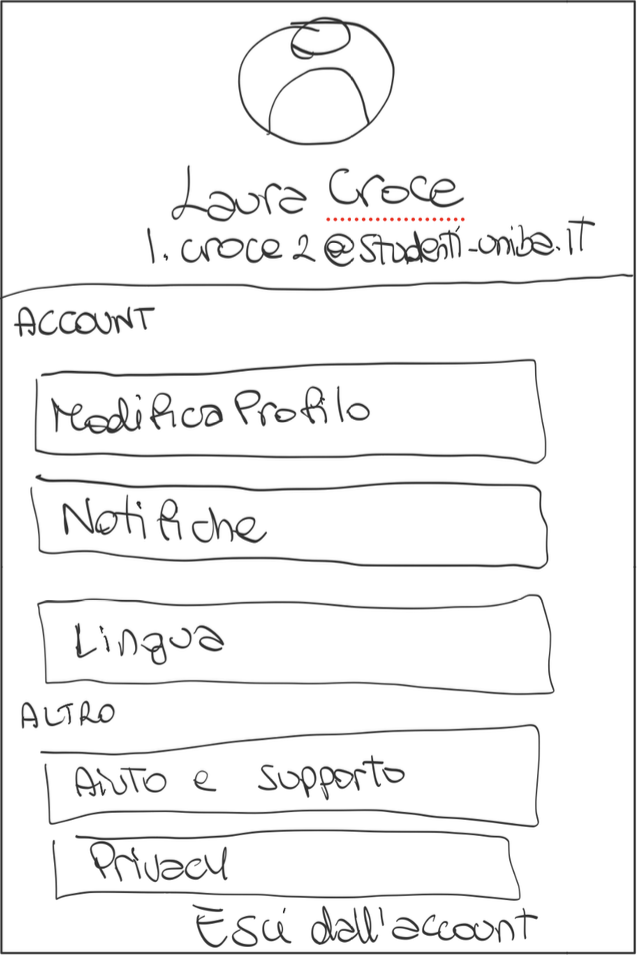 Laura Croce
l.croce2@studenti-uniba.IT
ACCOUNT
Modifica Profilo
Notifiche
Lingua
ALTRO
AiUTO e supporto
Privacy
Esci dall'account